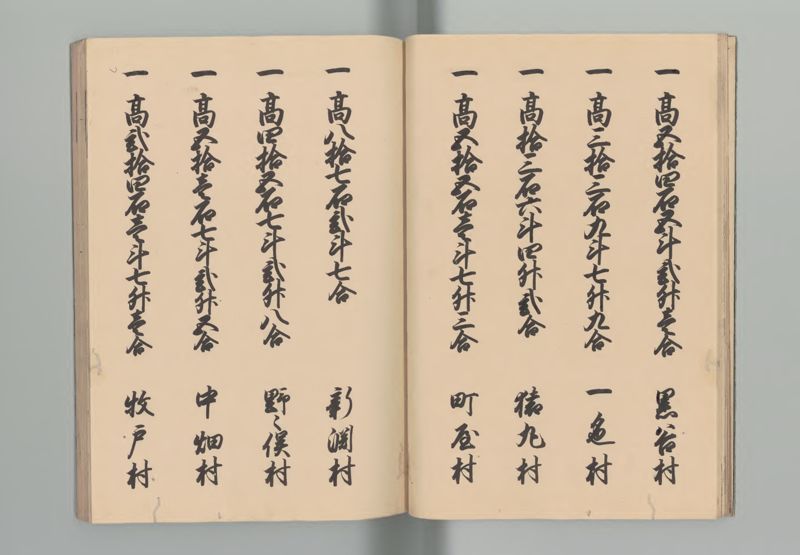 一 高五拾四石五斗弐升壱合 黒谷村
一 高三拾三石九斗七升九合 一色村
一 高拾三石六斗四升弐合 猿丸村
一 高五拾五石壱斗七升三合 町屋村
一 高八拾七石弐斗七合 新渕村
一 高四拾五石七斗弐升八合 野々俣村
一 高五拾壱石七斗弐升五合 中畑村
一 高弐拾四石壱斗七升壱合 牧戸村